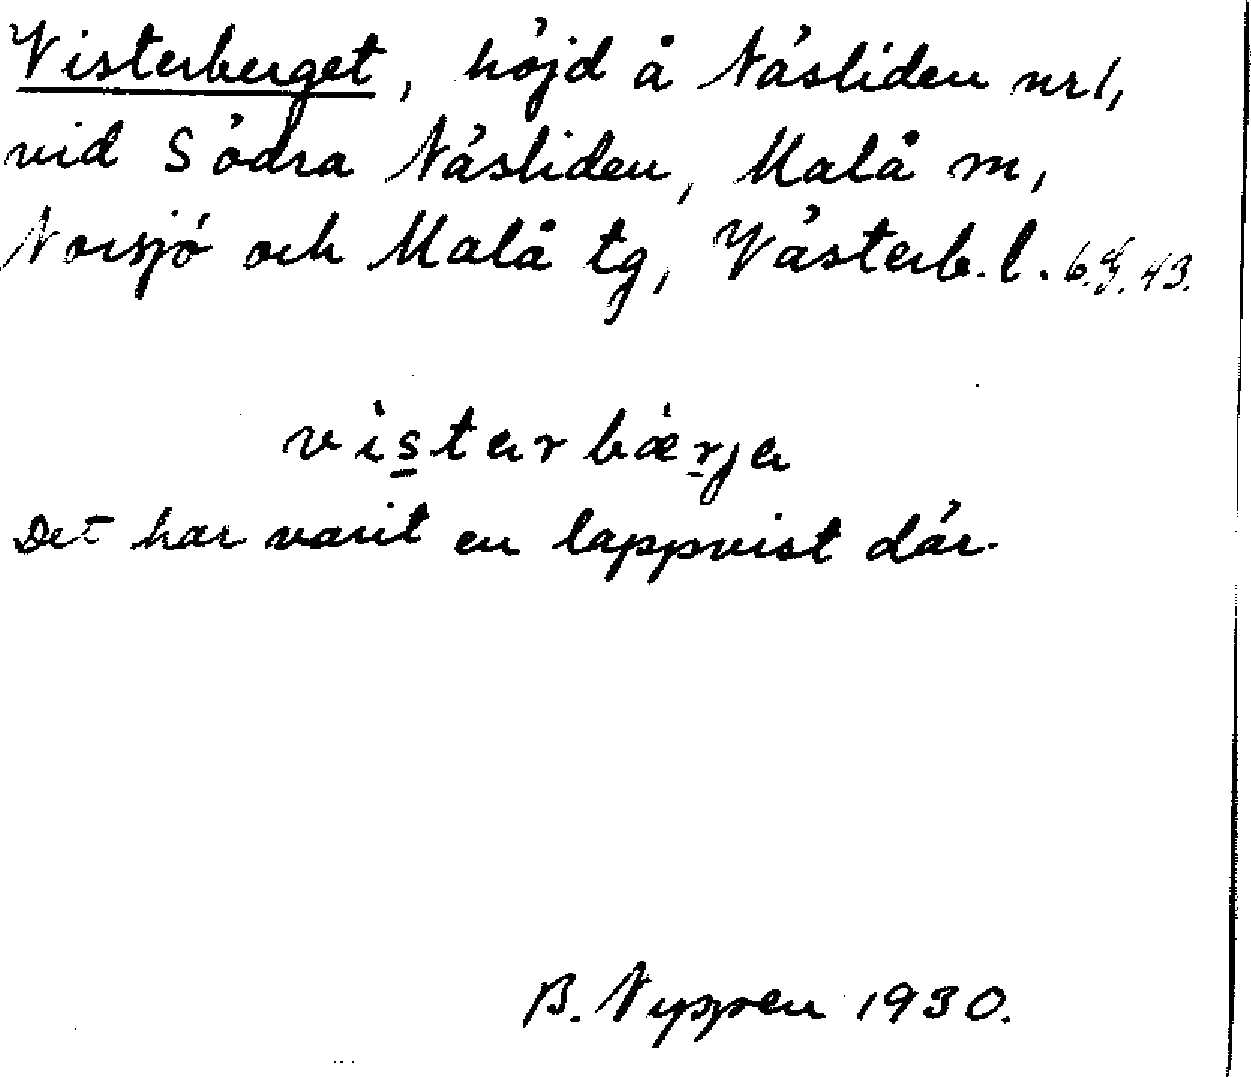 Visterberget, höjd å Näsliden nr 1,
vid Södra Näsliden, Malå m,
Norsjö och Malå tg, Västerb. l. 6.g. 43.
vistarbærja
Det har varit en lappvist där.
B. Nyppen 1930.